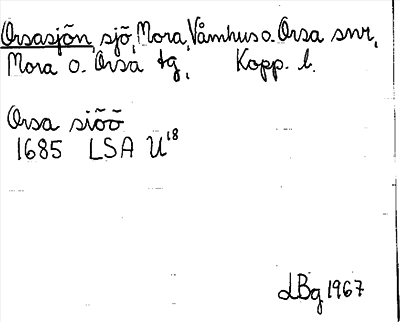 Orsasjön, sjö, Mora, Våmhus o. Orsa snr,
Mora o. Orsa tg, Kopp. l.
Orsa siöö
1685 LSA U18
LBg 1967